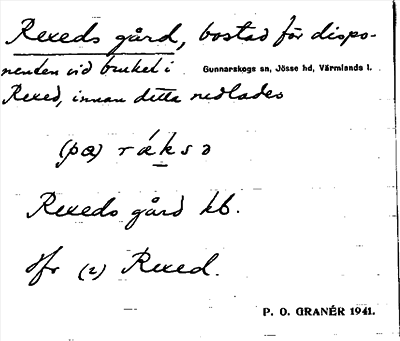 Rexeds gård, bostad för dispo-
nenten vid bruket i Gunnarskogs sn, Jösse hd, Värmlands l.
Rexed, innan detta nedlades
(pɑ) räksə
Rexeds gård kb.
Jfr (2) Rexed.
P. O. GRANÉR 1941.